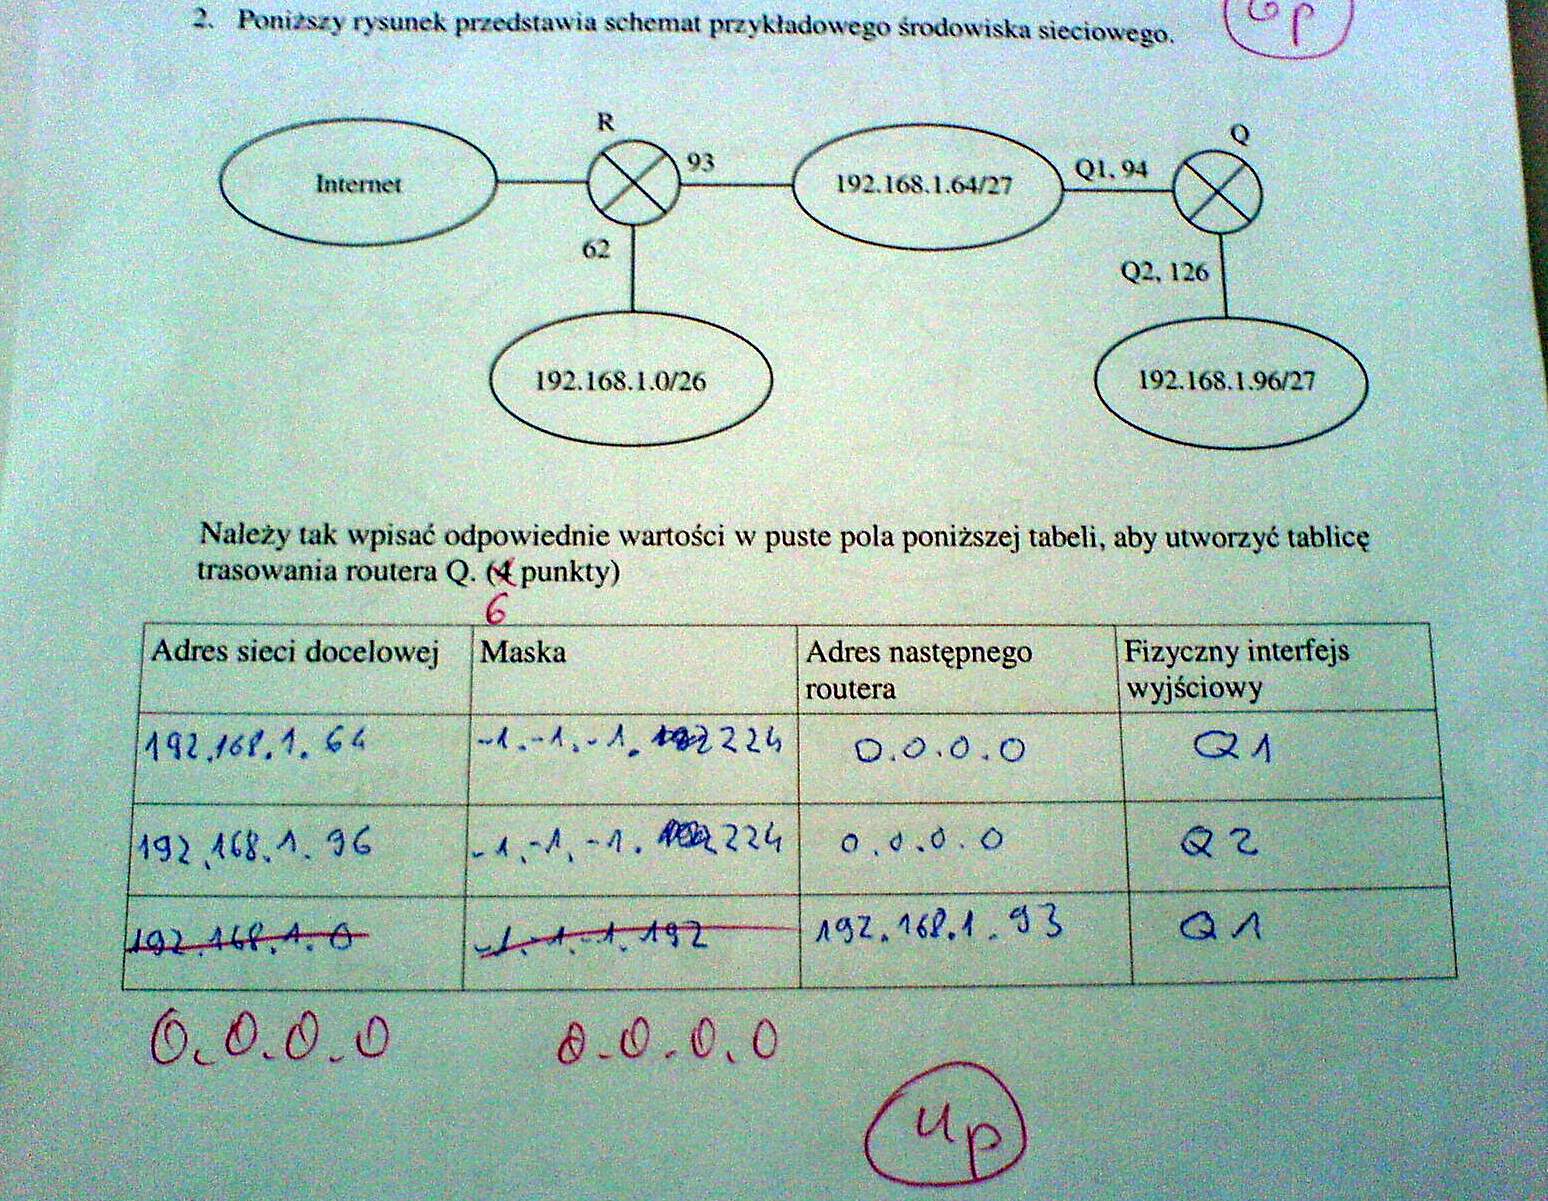 2. Poniższy rysunek przedstawia schemat przykładowego środowiska sieciowego.
6p
R
Q
Internet
93
192.168.1.64/27
Q1, 94
62
Q2, 126
192.168.1.0/26
192.168.1.96/27
Należy tak wpisać odpowiednie wartości w puste pola poniższej tabeli, aby utworzyć tablicę
trasowania routera Q. (4 punkty)
6
Adres sieci docelowej Maska Adres następnego routera Fizyczny interfejs wyjściowy
192.168.1.64 -1.-1.-1.224 0.0.0.0 Q1
192.168.1.96 -1.-1.-1.224 0.0.0.0 Q2
192.168.1.0 -1.-1.-1.192 192.168.1.93 Q1
0.0.0.0 0.0.0.0
4p